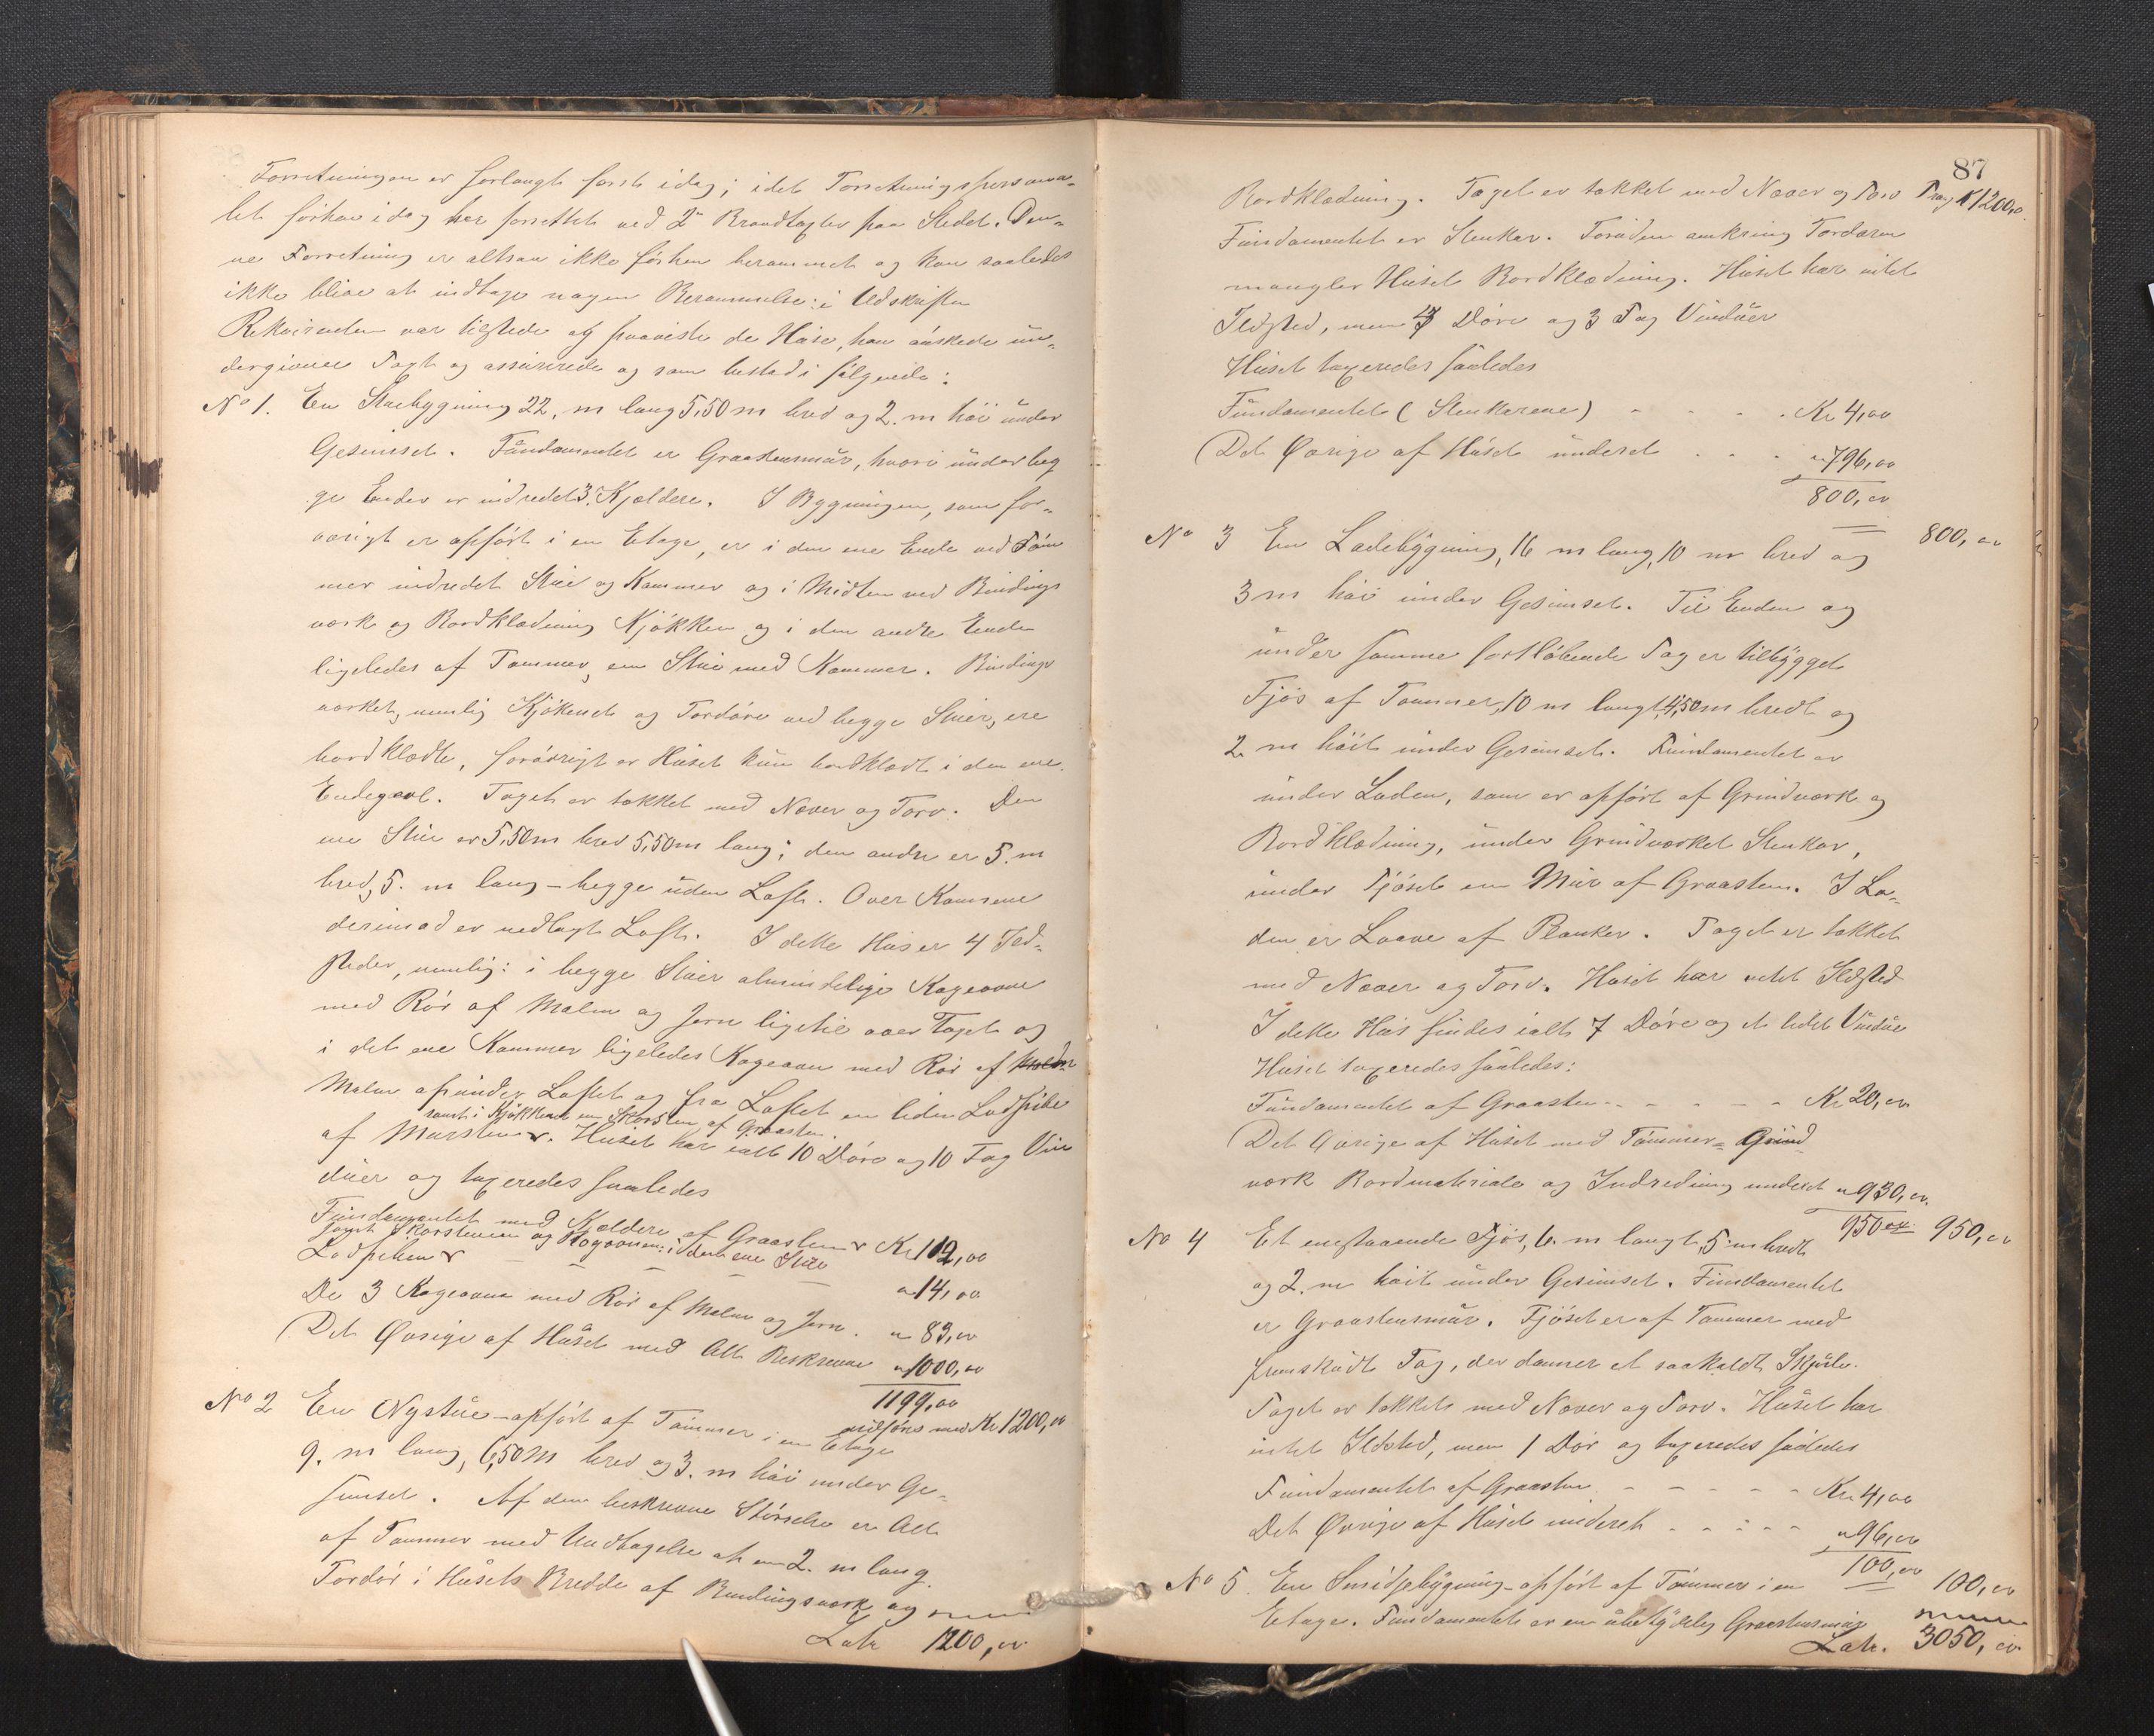 Forretningen er forlangt først idag; idet Forretningspersona-
let forhen idag har forrettet ved 2de Brandtaxter paa Stedet. Den-
ne Forretning er altsaa ikke forhen berammet og kan saaledes
ikke blive at indtage nogen Berammelse i Udskriften
Rekvirenten var tilstede og paaviste de Huse, han ønskede un-
dergivne Taxt og assurerede og som bestod i følgende:
No 1. En Stuebygning 22, m lang 5,50 m bred og 2. m høi under
Gesimset. Fundamentet er Graastensmur, hvori under beg
ge Ender er indredet 3 Kjældere. I Bygningen, som for-
øvrigt er opført i en Etage, er i den ene Ende ved Tøm
mer indredet Stue og Kammer og i Midten ved Bindings
værk og Bordklædning Kjøkken og i den andre Ende
ligeledes af Tømmer, en Stue med Kammer. Bindings
værket, nemlig Kjøkenet og Fordøre ved begge Stuer, ere
bordklædte, forøvrigt er Huset kun bordklædt i den ene
Endegavl. Taget er tækket med Næver og Torv. Den
ene Stue er 5,50 m bred 5,50 m lang; den andre er 5. m
bred, 5. m lang - begge uden Loft. Over Kamrene
derimod er nedlagt Loft. I dette Hus er 4 Ild-
steder, nemlig: i begge Stuer almindelige Kageovne
med Rør af Malm og Jern ligetil over Taget og
i det ene Kammer ligeledes Kageovn med Rør af
Malm opunder Loftet og fra Loftet en liden Ludpibe
samt i Kjøkkenet en Skorsten af Graasten.
af Mursten. Huset har ialt 10 Døre og 10 Fag Vin
duer og taxeredes saaledes
Fundamentet med Kjældere af Graasten Kr 102,00
samt Skorstenen og Kogeovnen i den ene Stue
Ludpiben " 14,00
De 3 Kageovne med Rør af Malm og Jern. " 83,00
Det Øvrige af Huset med Alt Beskrevne " 1000,00
1199,00
udføres med Kr 1200,00
No 2 En Nystue - opført af Tømmer i en Etage
9. m lang, 6,50 m bred og 3. m høi under Ge-
simset. Af den beskrevne Størrelse er Alt
af Tømmer med Undtagelse af en 2. m lang.
Fordør i Husets Bredde af Bindingsværk og
Lat. 1200,00
87
Bordklædning. Taget er tækket med Næver og Torv Trsp. K 1200,00
Fundamentet er Stenkar. Foruden omkring Fordøren
mangler Huset Bordklædning. Huset har intet
Ildsted, men 7 Døre og 3 Fag Vinduer
Huset taxeredes saaledes
Fundamentet (Stenkarene) - - - Kr 4,00
Det Øvrige af Huset underet . . . " 796,00
800,00
800,00
No 3 En Ladebygning, 16 m lang, 10 m bred og
3 m høi under Gesimset. Til Enden og
under samme fortløbende Tag er tilbygget
Fjøs af Tømmer, 10 m langt, 4,50 m bredt og
2. m høit under Gesimset. Fundamentet er
under Laden, som er opført af Grindværk og
Bordklædning, under Grindværket Stenkar,
under Fjøset en Mur af Graasten. I La-
den er Laave af Planker. Taget er tækket
med Næver og Torv. Huset har intet Ildsted
I dette Hus findes ialt 7 Døre og et lidet Vindue
Huset taxeredes saaledes:
Fundamentet af Graasten - - - - - Kr 20,00
Det Øvrige af Huset med Tømmer- Grind
værk Bordmateriale og Indredning underet " 930,00
950,00 950,00
No 4 Et enestaaende Fjøs, 6. m langt, 5. m bredt
og 2. m høit under Gesimset. Fundamentet
er Graastensmur. Fjøset er af Tømmer med
fremskudt Tag, der danner et saakaldt Skjul.
Taget er tækket med Næver og Torv. Huset har
intet Ildsted, men 1 Dør og taxeredes saaledes
Fundamentet af Graasten - - - - - Kr 4,00
Det Øvrige af Huset underet - - - - " 96,00
100,00 100,00
No 5. En Smidjebygning - opført af Tømmer i en
Etage. Fundamentet er en ubetydelig Graastensmur
Lat. 3050,00